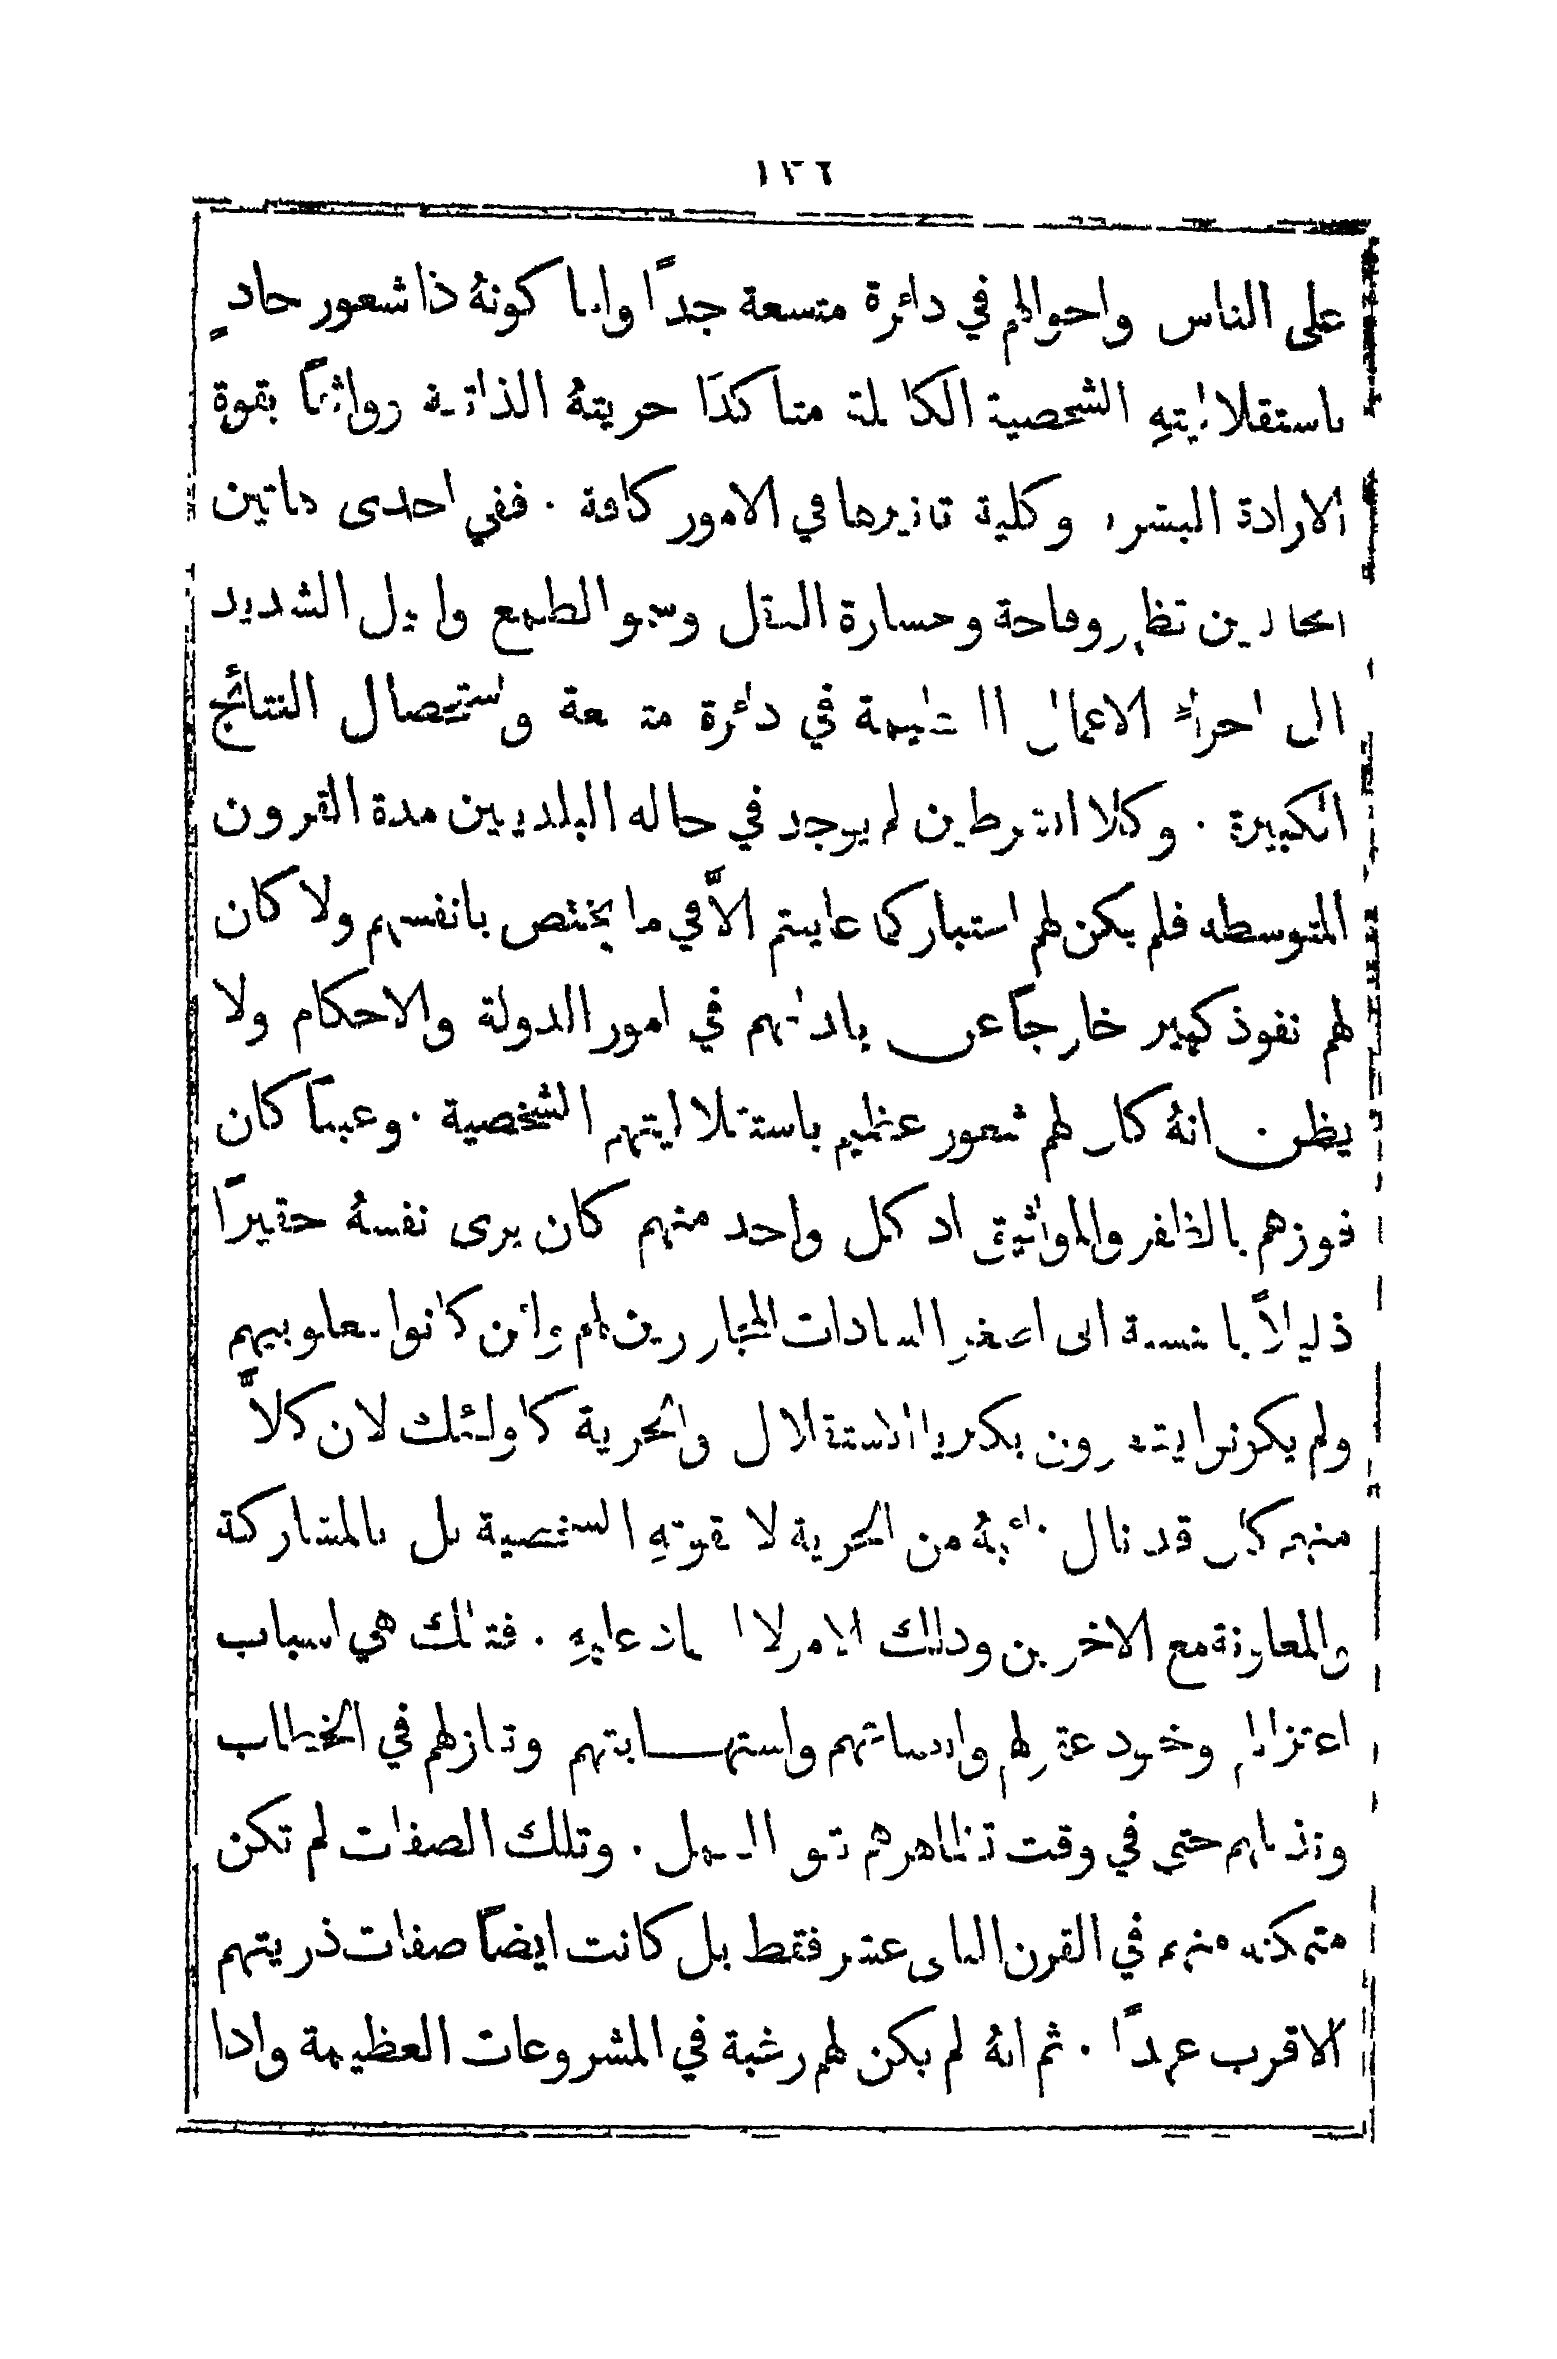 ١٣٦
على الناس واحوالهم في دائرة متسعة جداً واما كونهُ ذا شعور حادٍ
باستقلاليتهِ الشخصية الكاملة متاكدًا حريتهُ الذاتية وواثقاً بقوة
الارادة البشرية وكلية تاثيرها في الامور كافة . ففي احدى هاتين
الحالتين تظهر وقاحة وجسارة العقل وسمو الطمع والميل الشديد
الى اجراءِ الاعمال العظيمة في دائرة متسعة واستحصال النتائج
الكبيرة . وكلا الشرطين لم يوجد في حاله البلديين مدة القرون
المتوسطه فلم يكن لهم استبار كما علمتم الاَّ في ما يختص بانفسهم ولا كان
لهم نفوذ كبير خارجاً عن بلدتهم في امور الدولة والاحكام ولا
يظن انهُ كان لهم شعور عظيم باستقلاليتهم الشخصية . وعبثاً كان
فوزهم بالظفر والمواثيق اذ كل واحد منهم كان يرى نفسهُ حقيرًا
ذليلاً بالنسبة الى اصغر السادات المجاورين لهم وائن كانوا مغلوبيهم
ولم يكونوا يشعرون بكبرياء الاستقلال والحرية كاولئك لان كلاًّ
منهم كان قد نال من الحرية لا بقوتهِ الشخصية بل بالمشاركة
والمعاونة مع الاخرين وذلك الامر لا عليهِ . فتلك هي اسباب
اعتزالهم وخمود عقولهم واستهابتهم وتنازلهم في الخطاب
وتذللهم حتى في وقت تظاهرهم نحو العمل . وتلك الصفات لم تكن
متمكنه منهم في القرن الثاني عشر فقط بل كانت ايضاً صفات ذريتهم
الاقرب عهداً . ثم انهُ لم يكن لهم رغبة في المشروعات العظيمة واذا